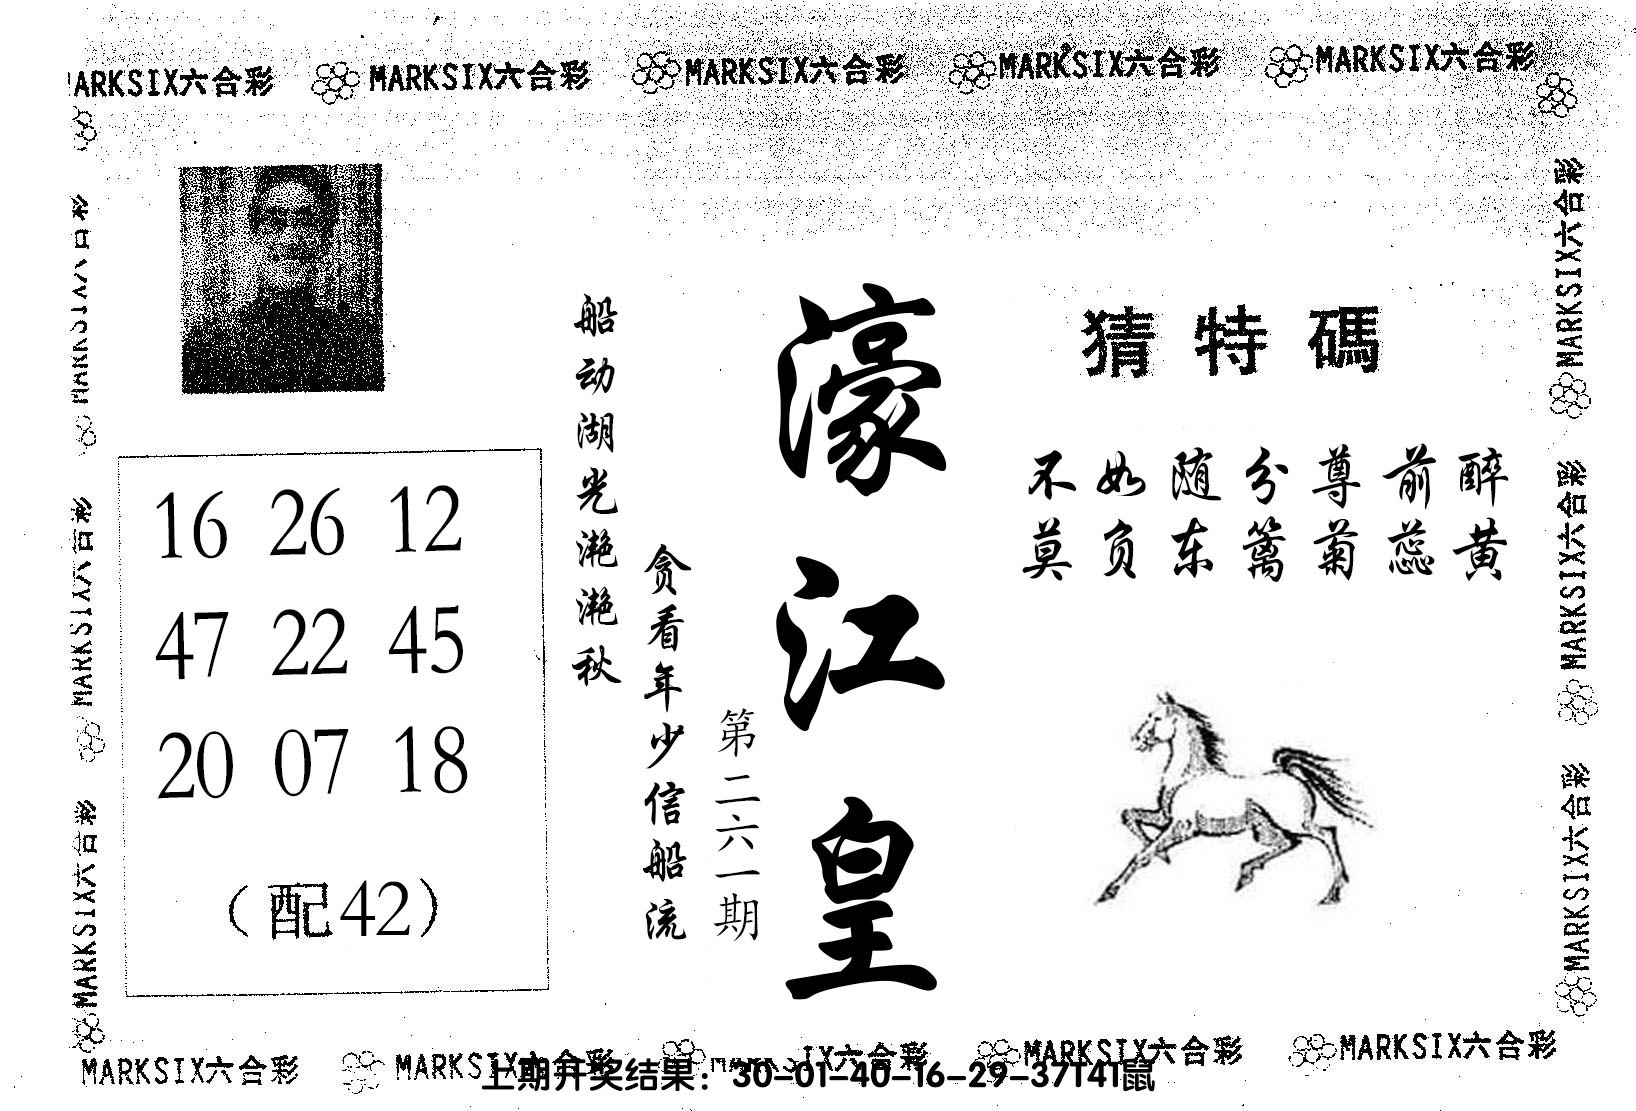 MARKSIX六合彩 MARKSIX六合彩 MARKSIX六合彩 MARKSIX六合彩 MARKSIX六合彩
猜特碼
不如随分尊前醉
莫负东篱菊蕊黄
濠江皇
第二六一期
船动湖光滟滟秋
贪看年少信船流
16 26 12
47 22 45
20 07 18
（配42）
MARKSIX六合彩
MARKSIX六合彩
MARKSIX六合彩
MARKSIX六合彩
MARKSIX六合彩
MARKSIX六合彩
MARKSIX六合彩 MARKSIX六合彩 IX六合彩 MARKSIX六合彩 MARKSIX六合彩
上期开奖结果：30-01-40-16-29-37T41鼠